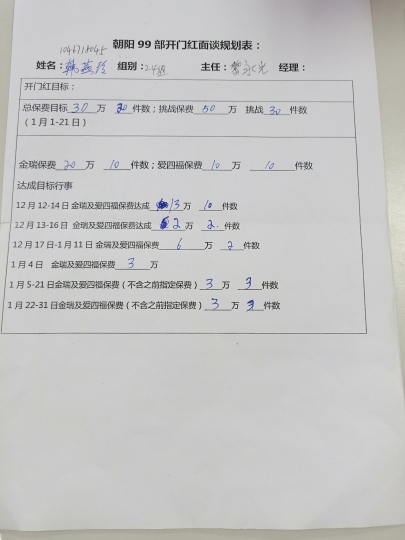 朝阳 99 部开门红面谈规划表：
姓名： 组别： 主任： 经理：
开门红目标：
总保费目标 30 万 20 件数；挑战保费 50 万 挑战 30 件数
（1 月 1-21 日）
金瑞保费 20 万 10 件数；爱四福保费 10 万 10 件数
达成目标行事
12 月 12-14 日 金瑞及爱四福保费达成 13 万 10 件数
12 月 13-16 日 金瑞及爱四福保费达成 2 万 2 件数
12 月 17 日-1 月 11 日 金瑞及爱四福保费 6 万 2 件数
1 月 4 日 金瑞及爱四福保费 3 万
1 月 5-21 日金瑞及爱四福保费（不含之前指定保费） 3 万 3 件数
1 月 22-31 日金瑞及爱四福保费（不含之前指定保费） 3 万 3 件数